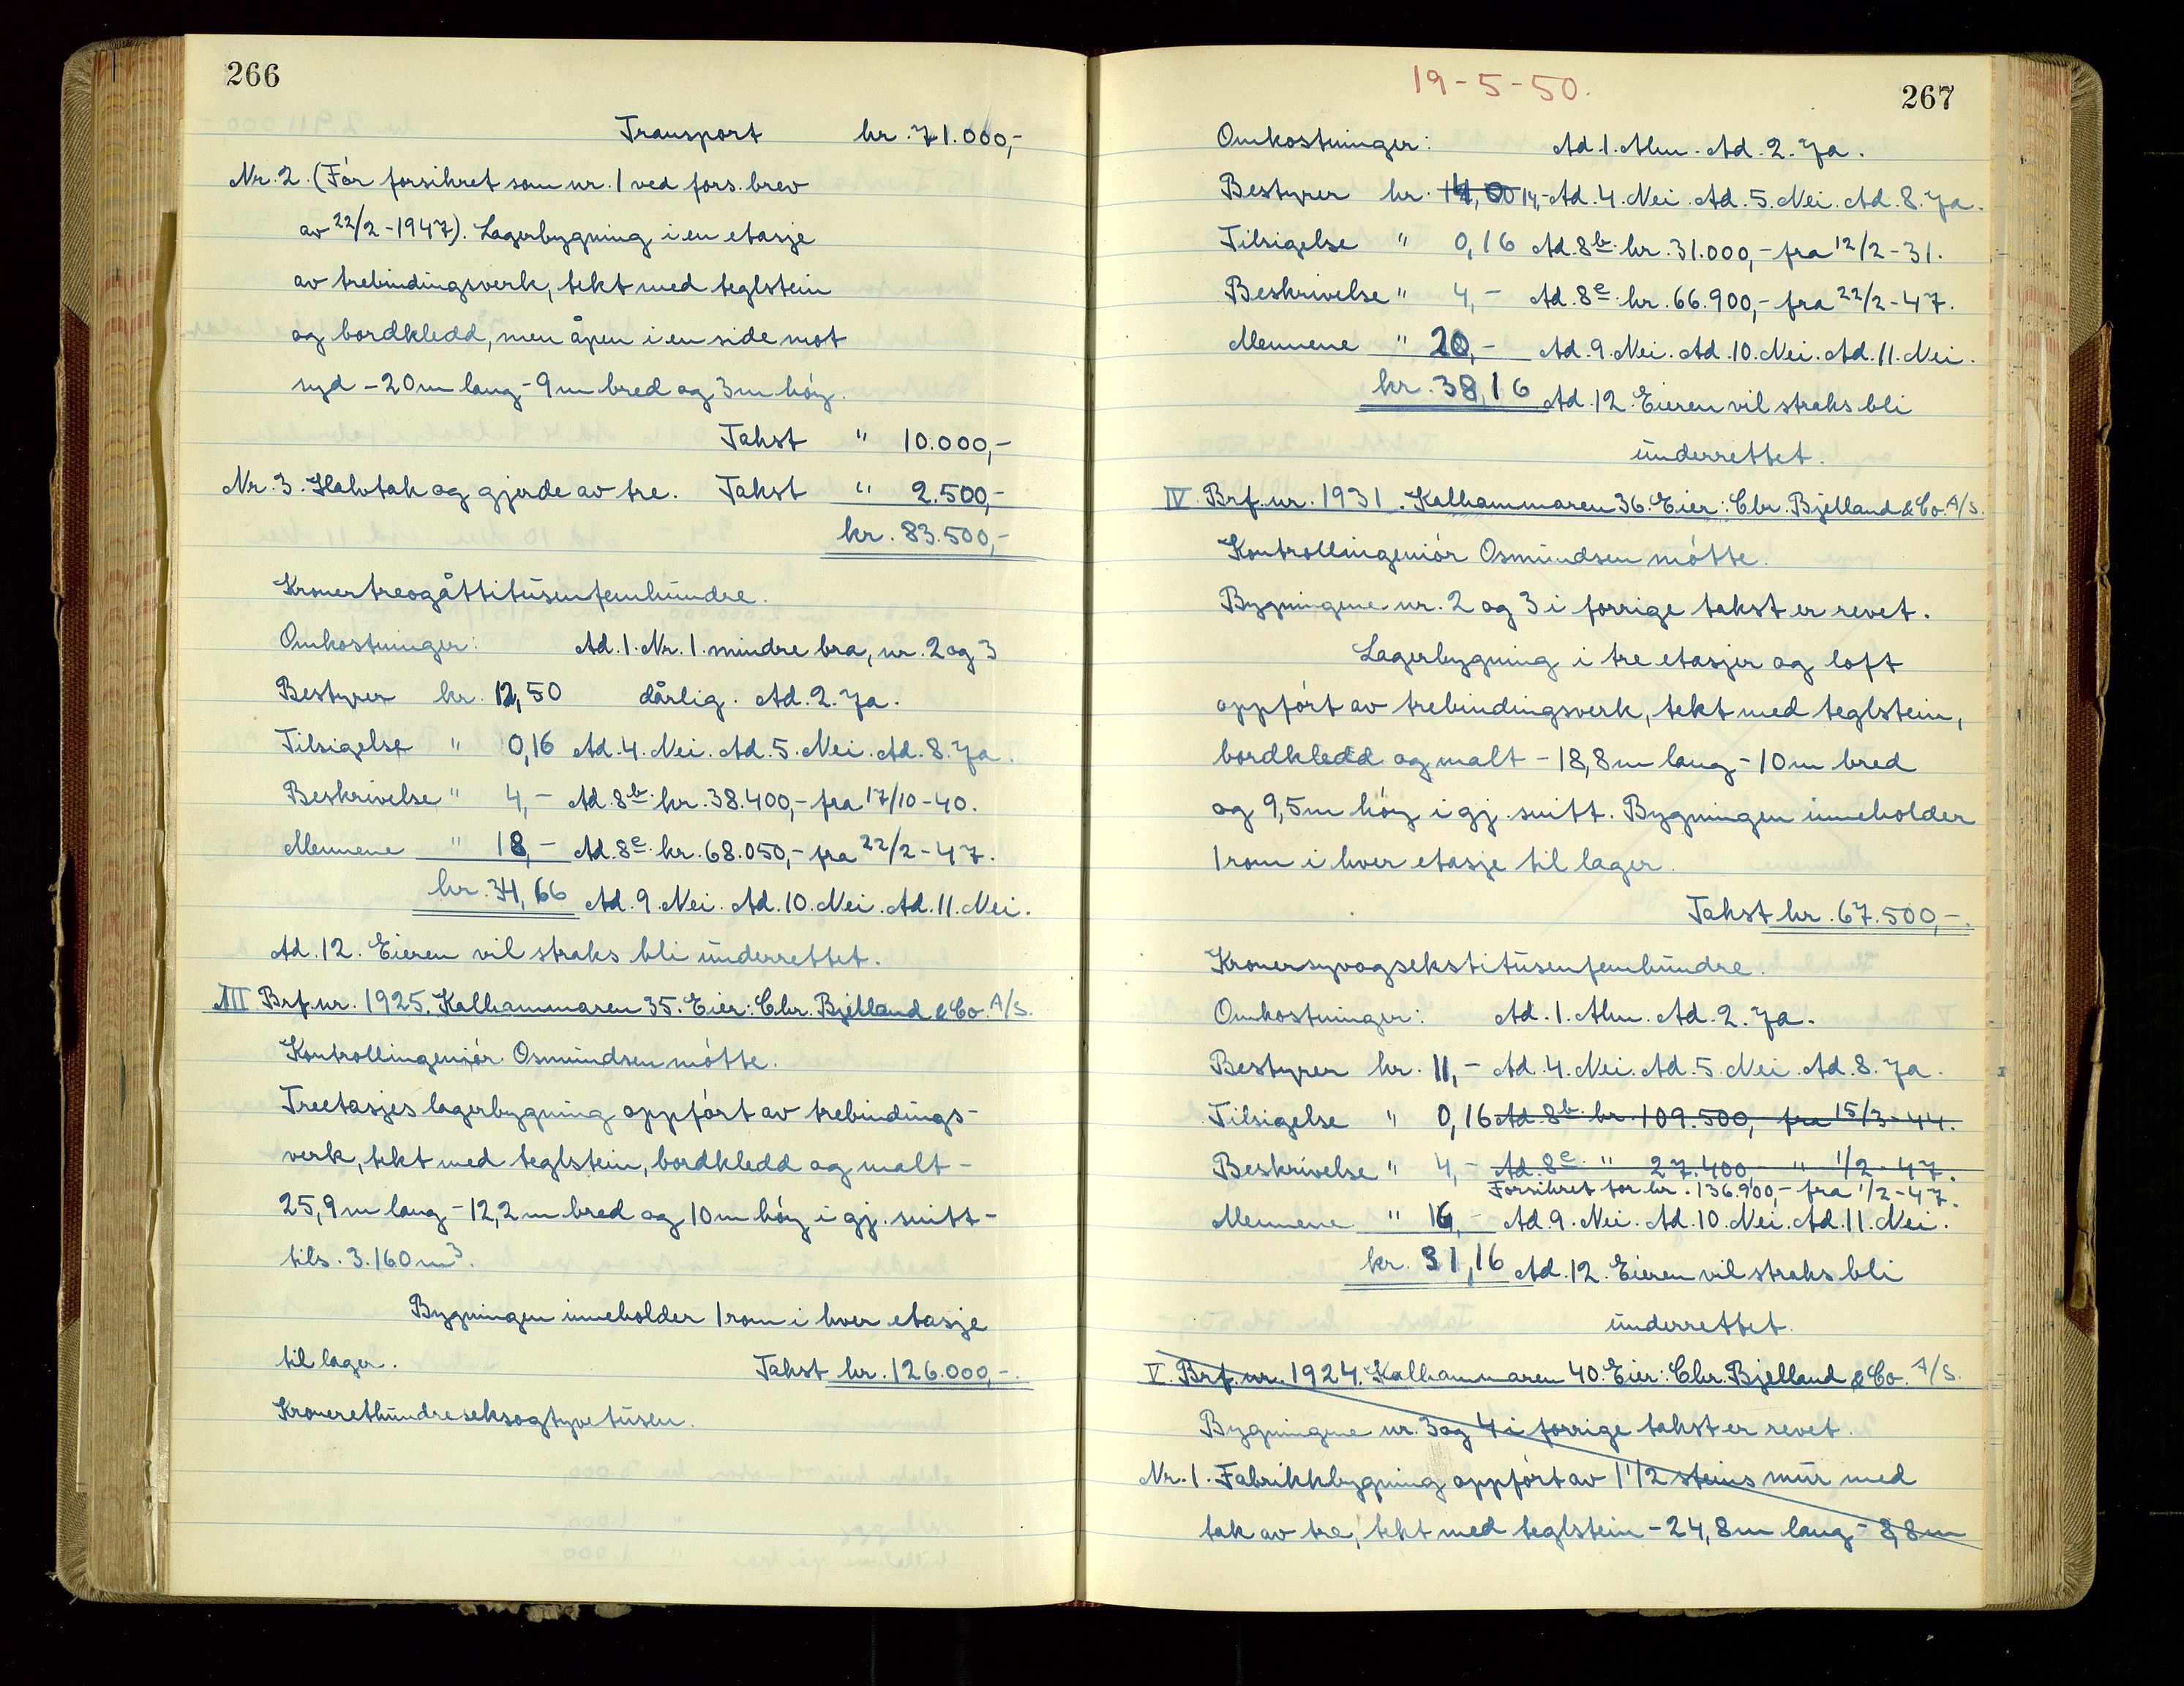 266
Transport kr. 71.000,-
Nr. 2. (Før forsikret som nr. 1 ved fors. brev
av 22/2 - 1947). Lagerbygning i en etasje
av trebindingsverk, tekt med teglstein
og bordkledd, men åpen i en side mot
syd - 20 m lang - 9 m bred og 3 m høy.
Takst " 10.000,-
Nr. 3. Halvtak og gjerde av tre. Takst " 2.500,-
kr. 83.500,-
Kronertreogåttitusenfemhundre.
Omkostninger: Ad. 1. Nr. 1. mindre bra, nr. 2 og 3
Bestyrer kr. 12,50 dårlig. Ad. 2. Ja.
Tilsigelse " 0,16 Ad. 4. Nei. Ad. 5. Nei. Ad. 8. Ja.
Beskrivelse " 4,- Ad. 8b. kr. 38.400,- fra 17/10 - 40.
Mennene " 18,- Ad. 8c. kr. 68.050,- fra 22/2 - 47.
kr. 34,66 Ad. 9. Nei. Ad. 10. Nei. Ad. 11. Nei.
Ad. 12. Eieren vil straks bli underrettet.
III. Brf. nr. 1925. Kalhammaren 35. Eier: Chr. Bjelland & Co. A/S.
Kontrollingeniør Osmundsen møtte.
Treetasjes lagerbygning oppført av trebindings-
verk, tekt med teglstein, bordkledd og malt -
25,9 m lang - 12,2 m bred og 10 m høy i gj. snitt -
tils. 3.160 m³.
Bygningen inneholder 1 rom i hver etasje
til lager. Takst kr. 126.000,-.
Kronerethundreseksogtyvetusen.
19-5-50.
267
Omkostninger: Ad. 1. Alm. Ad. 2. Ja.
Bestyrer kr. 14,00 14,- Ad. 4. Nei. Ad. 5. Nei. Ad. 8. Ja.
Tilsigelse " 0,16 Ad. 8b. kr. 31.000,- fra 12/2 - 31.
Beskrivelse " 4,- Ad. 8c. kr. 66.900,- fra 22/2 - 47.
Mennene " 20,- Ad. 9. Nei. Ad. 10. Nei. Ad. 11. Nei.
kr. 38,16 Ad. 12. Eieren vil straks bli
underrettet.
IV. Brf. nr. 1931. Kalhammaren 36. Eier: Chr. Bjelland & Co. A/S.
Kontrollingeniør Osmundsen møtte.
Bygningene nr. 2 og 3 i forrige takst er revet.
Lagerbygning i tre etasjer og loft
oppført av trebindingsverk, tekt med teglstein,
bordkledd og malt - 18,8 m lang - 10 m bred
og 9,5 m høy i gj. snitt. Bygningen inneholder
1 rom i hver etasje til lager.
Takst kr. 67.500,-.
Kronersyvogsekstitusenfemhundre.
Omkostninger: Ad. 1. Alm. Ad. 2. Ja.
Bestyrer kr. 11,- Ad. 4. Nei. Ad. 5. Nei. Ad. 8. Ja.
Tilsigelse " 0,16 Ad. 8b. kr. 109.500,- fra 15/3 - 44.
Beskrivelse " 4,- Ad. 8c. " 27.400,- " 1/2 - 47.
Forsikret for kr. 136.900,- fra 1/2 - 47.
Mennene " 16,- Ad. 9. Nei. Ad. 10. Nei. Ad. 11. Nei.
kr. 31,16 Ad. 12. Eieren vil straks bli
underrettet.
V. Brf. nr. 1924. Kalhammaren 40. Eier: Chr. Bjelland & Co. A/S.
Bygningene nr. 3 og 4 i forrige takst er revet.
Nr. 1. Fabrikkbygning oppført av 1 1/2 steins mur med
tak av tre, tekt med teglstein - 24,8 m lang - 8,8 m